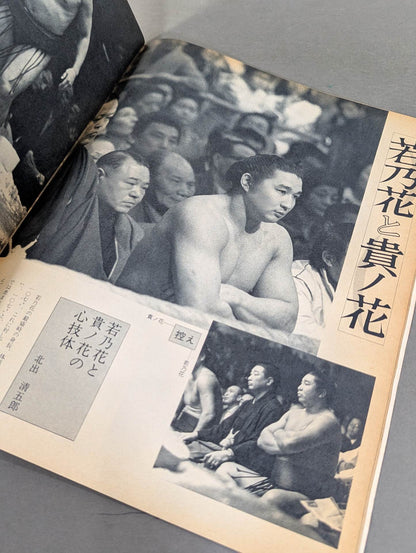 若乃花と貴ノ花
貴ノ花
控え
若乃花
若乃花と
貴ノ花の
心技体
北出 清五郎